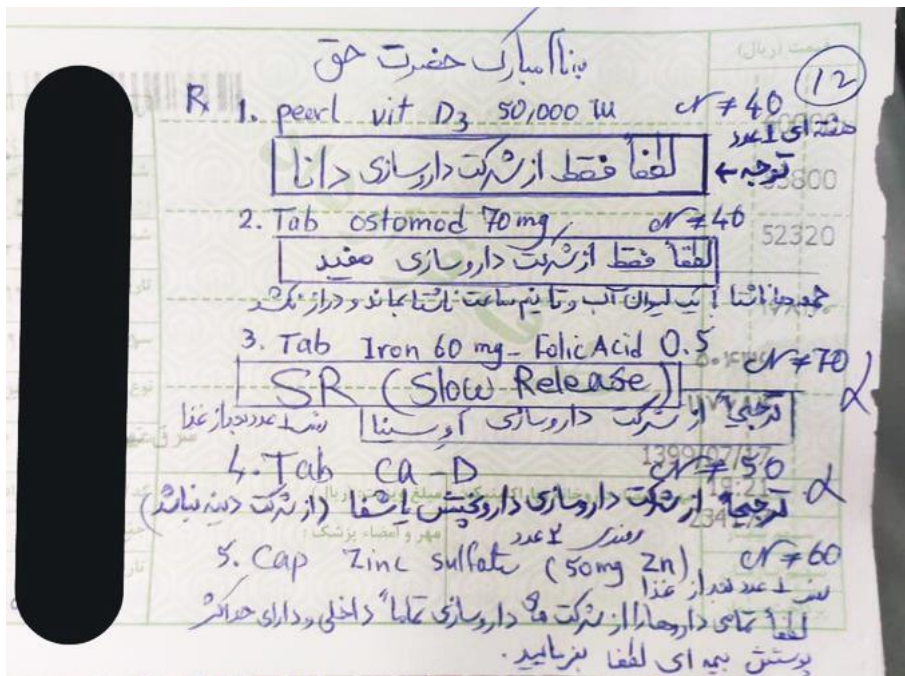 بنام مبارک حضرت حق
قیمت (ریال)
12
Rx 1. pearl vit D3 50,000 IU N≠40
هفته ای 1 عدد
لطفاً فقط از شرکت داروسازی دانا
توجه ←
53800
2. Tab ostomod 70 mg N≠40
52320
لطفاً فقط از شرکت داروسازی مفید
جمعه ها ناشتا با یک لیوان آب و تا نیم ساعت ناشتا بماند و دراز نکشد
3. Tab Iron 60 mg - Folic Acid 0.5 N≠70
SR (Slow Release)
ترجیحاً از شرکت داروسازی آوه سینا
شب 1 عدد بعد از غذا
1399/07/17
4. Tab Ca-D N≠50
19:21
ترجیحاً از شرکت داروسازی داروپخش یا شفا (از شرکت دینه نباشد)
روزی 2 عدد
مهر و امضاء پزشک:
5. Cap Zinc Sulfate (50mg Zn) N≠60
شب 1 عدد بعد از غذا
لطفاً تمامی داروها را از شرکت های داروسازی تماماً داخلی و دارای حداکثر
پوشش بیمه ای لطفا بفرمایید.